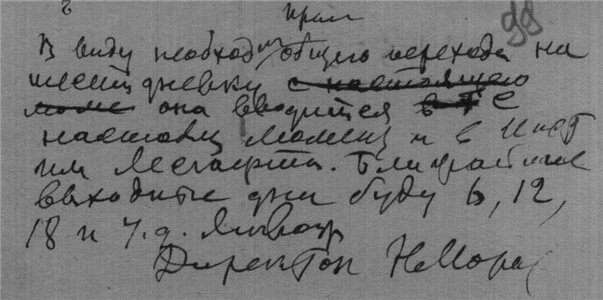 99
В виду необход общего перехода на
шест дневку с настоящего
она вводится в с
настоящ момент и в Инст
им Лесгафта. Ближайшие
выходные дни буду 6, 12,
18 и т.д. Января
Директор